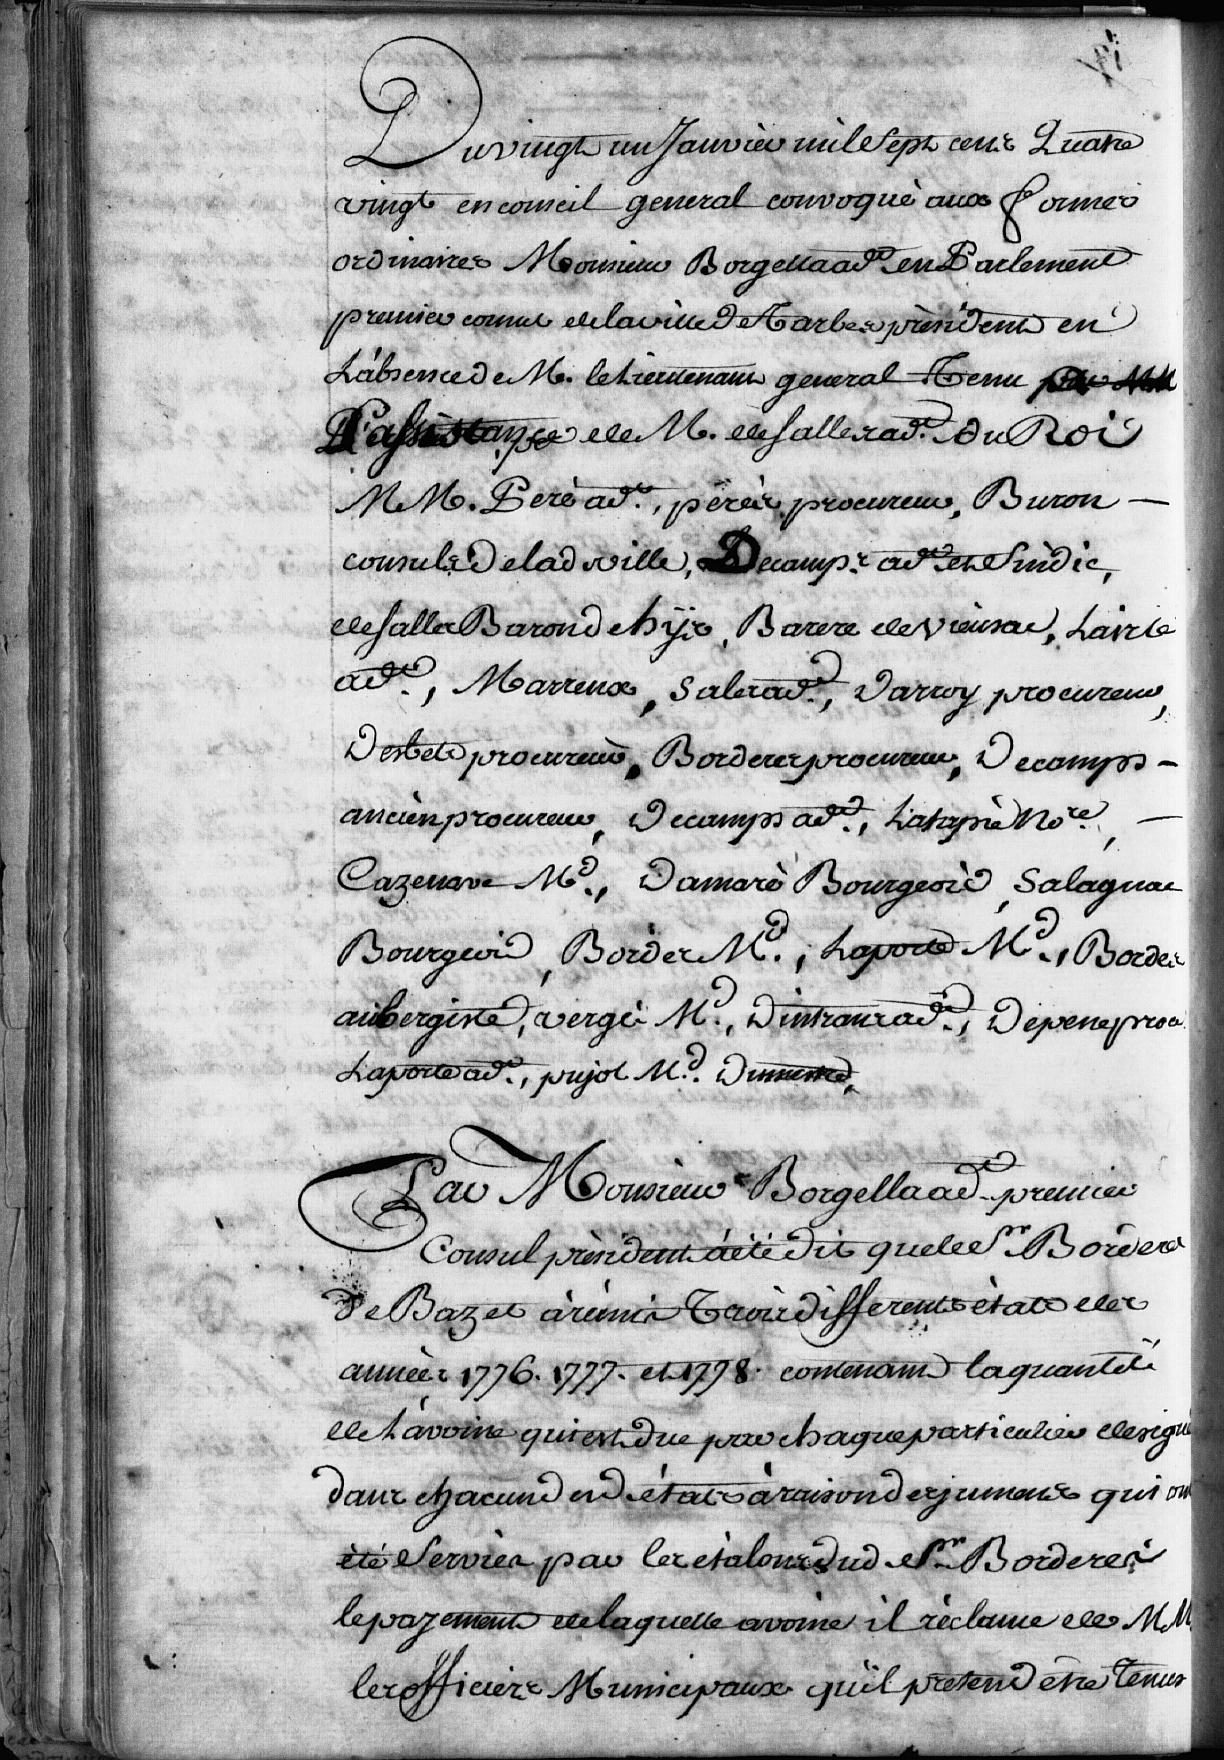 Du vingt un Janvier mil Sept cens Quatre
vingt en conseil general convoqué aux formes
ordinaires Monsieur Borgella adt. en Parlement
premier consul de la ville de Tarbes président en
L'absence de M. le Lieutenant general Tenu
L'assistance de M. de Salles adt. du Roi
MM. Peré adt., pérés procureur, Buron —
consuls de lad ville, Decamps adt. et Sindic,
de Salles Baron d'hÿis, Barere de vieusac, Lairle
adt., Marrenx, Sales adt., Darroy procureur,
Desbets procureur, Borderes procureur, Decamps —
ancien procureur, Decamps adt., Latapie Nore., —
Cazenave Md., Damaré Bourgeois, Salagnac
Bourgeois, Bordes Md., Laporte Md., Bordes
aubergiste, vergés Md., Dintrans adt., Depene procr
Laporte adt., pujol Md.
Par Monsieur Borgella adt. premier
Consul président a été dit que le Sr. Borderes
de Bazet à rémis Trois differents états des
années 1776. 1777. et 1778. contenant la quantité
de L'avoine qui est due par chaque particulier designé
dans chacun d'd. états à raison des jumens qui ont
été Servies par les étalons dud. Sr. Borderes
le payement de laquelle avoine il réclame de MM.
les officiers Municipaux qu'il pretend etre tenus